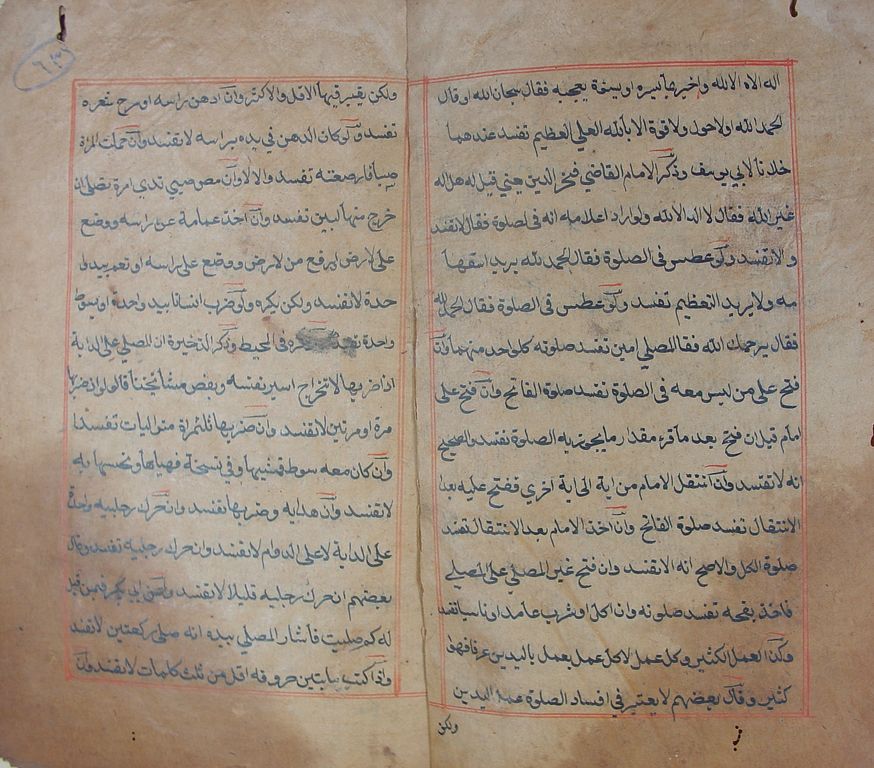 اله الا الله واخبر بما يسره او بيشة يعجبه فقال سبحان الله او قال
الحمد لله او لاحول ولا قوة الا بالله العلي العظيم تفسد عندهما
خلافا لابي يوسف وذكر الامام القاضي فخر الدين يعني قيل له هل اله
غير الله فقال لا اله الا الله ولو اراد اعلامه انه في الصلوة فقال لا تفسد
والا تفسد ولو عطس في الصلوة فقال الحمد لله يريد
مه ولا يريد التعظيم تفسد ولو عطس في الصلوة فقال الحمد لله
فقال يرحمك الله فقال المصلي امين تفسد صلوته كل واحد منهما وان
فتح على من ليس معه في الصلوة تفسد صلوة الفاتح وان فتح على
امام قيل ان فتح بعد ما قرء مقدار ما يجوز به الصلوة تفسد والصحيح
انه لا تفسد وان انتقل الامام من اية الى اية اخري ففتح عليه بعد
الانتقال تفسد صلوة الفاتح وان اخذ الامام بعد الانتقال تفسد
صلوة الكل والاصح انه لا تفسد وان فتح غير المصلي على المصلي
فاخذ بفتحه تفسد صلوته وان اكل او شرب عامدا او ناسيا تفسد
وكذا العمل الكثير وكل عمل لا كل عمل يعمل باليدين عرفا فهو
كثير وقال بعضهم لا يعتبر في افساد الصلوة عمل اليدين
ولكن
٦٣
ولكن يعتبر فيها الاقل والاكثر وان ادهن راسه او سرح شعره
تفسد ولو كان الدهن في يده براسه لا تفسد وان حملت المراة
صبيا فارضعته تفسد والا لا وان مص صبي ثدي امرة تصلي ان
خرج منها لبن تفسد وان اخذ عمامة عن راسه ووضع
على لارض او رفع من لارض ووضع على راسه او تعمم بيد وا
حدة لا تفسد ولكن يكره ولو ضرب انسانا بيد واحدة او بسوط
واحدة في المحيط وذكر الذخيرة ان المصلي على الداية
اذا ضربها لاتخراج اسير تفسه وبعض مشائخنا قالوا اذا ضربها
مرة او مرتين لا تفسد وان ضربها ثلثمراة متواليات تفسد
وان كان معه سوط فمشيها وفي نسخة فهياها ونخسها به
لا تفسد وان هدايه وضربها تفسد وان حرك رجليه واحدة
على الداية لا على الدوام لا تفسد وان حرك رجليه تفسد وقال
بعضهم ان حرك رجليه قليلا لا تفسد وعن ابي بكر فيمن قيل
له كم صليت فاشار المصلي بيده انه صلي ركعتين لا تفسد
واذا كتب حروفه اقل من ثلث كلمات لا تفسد وان